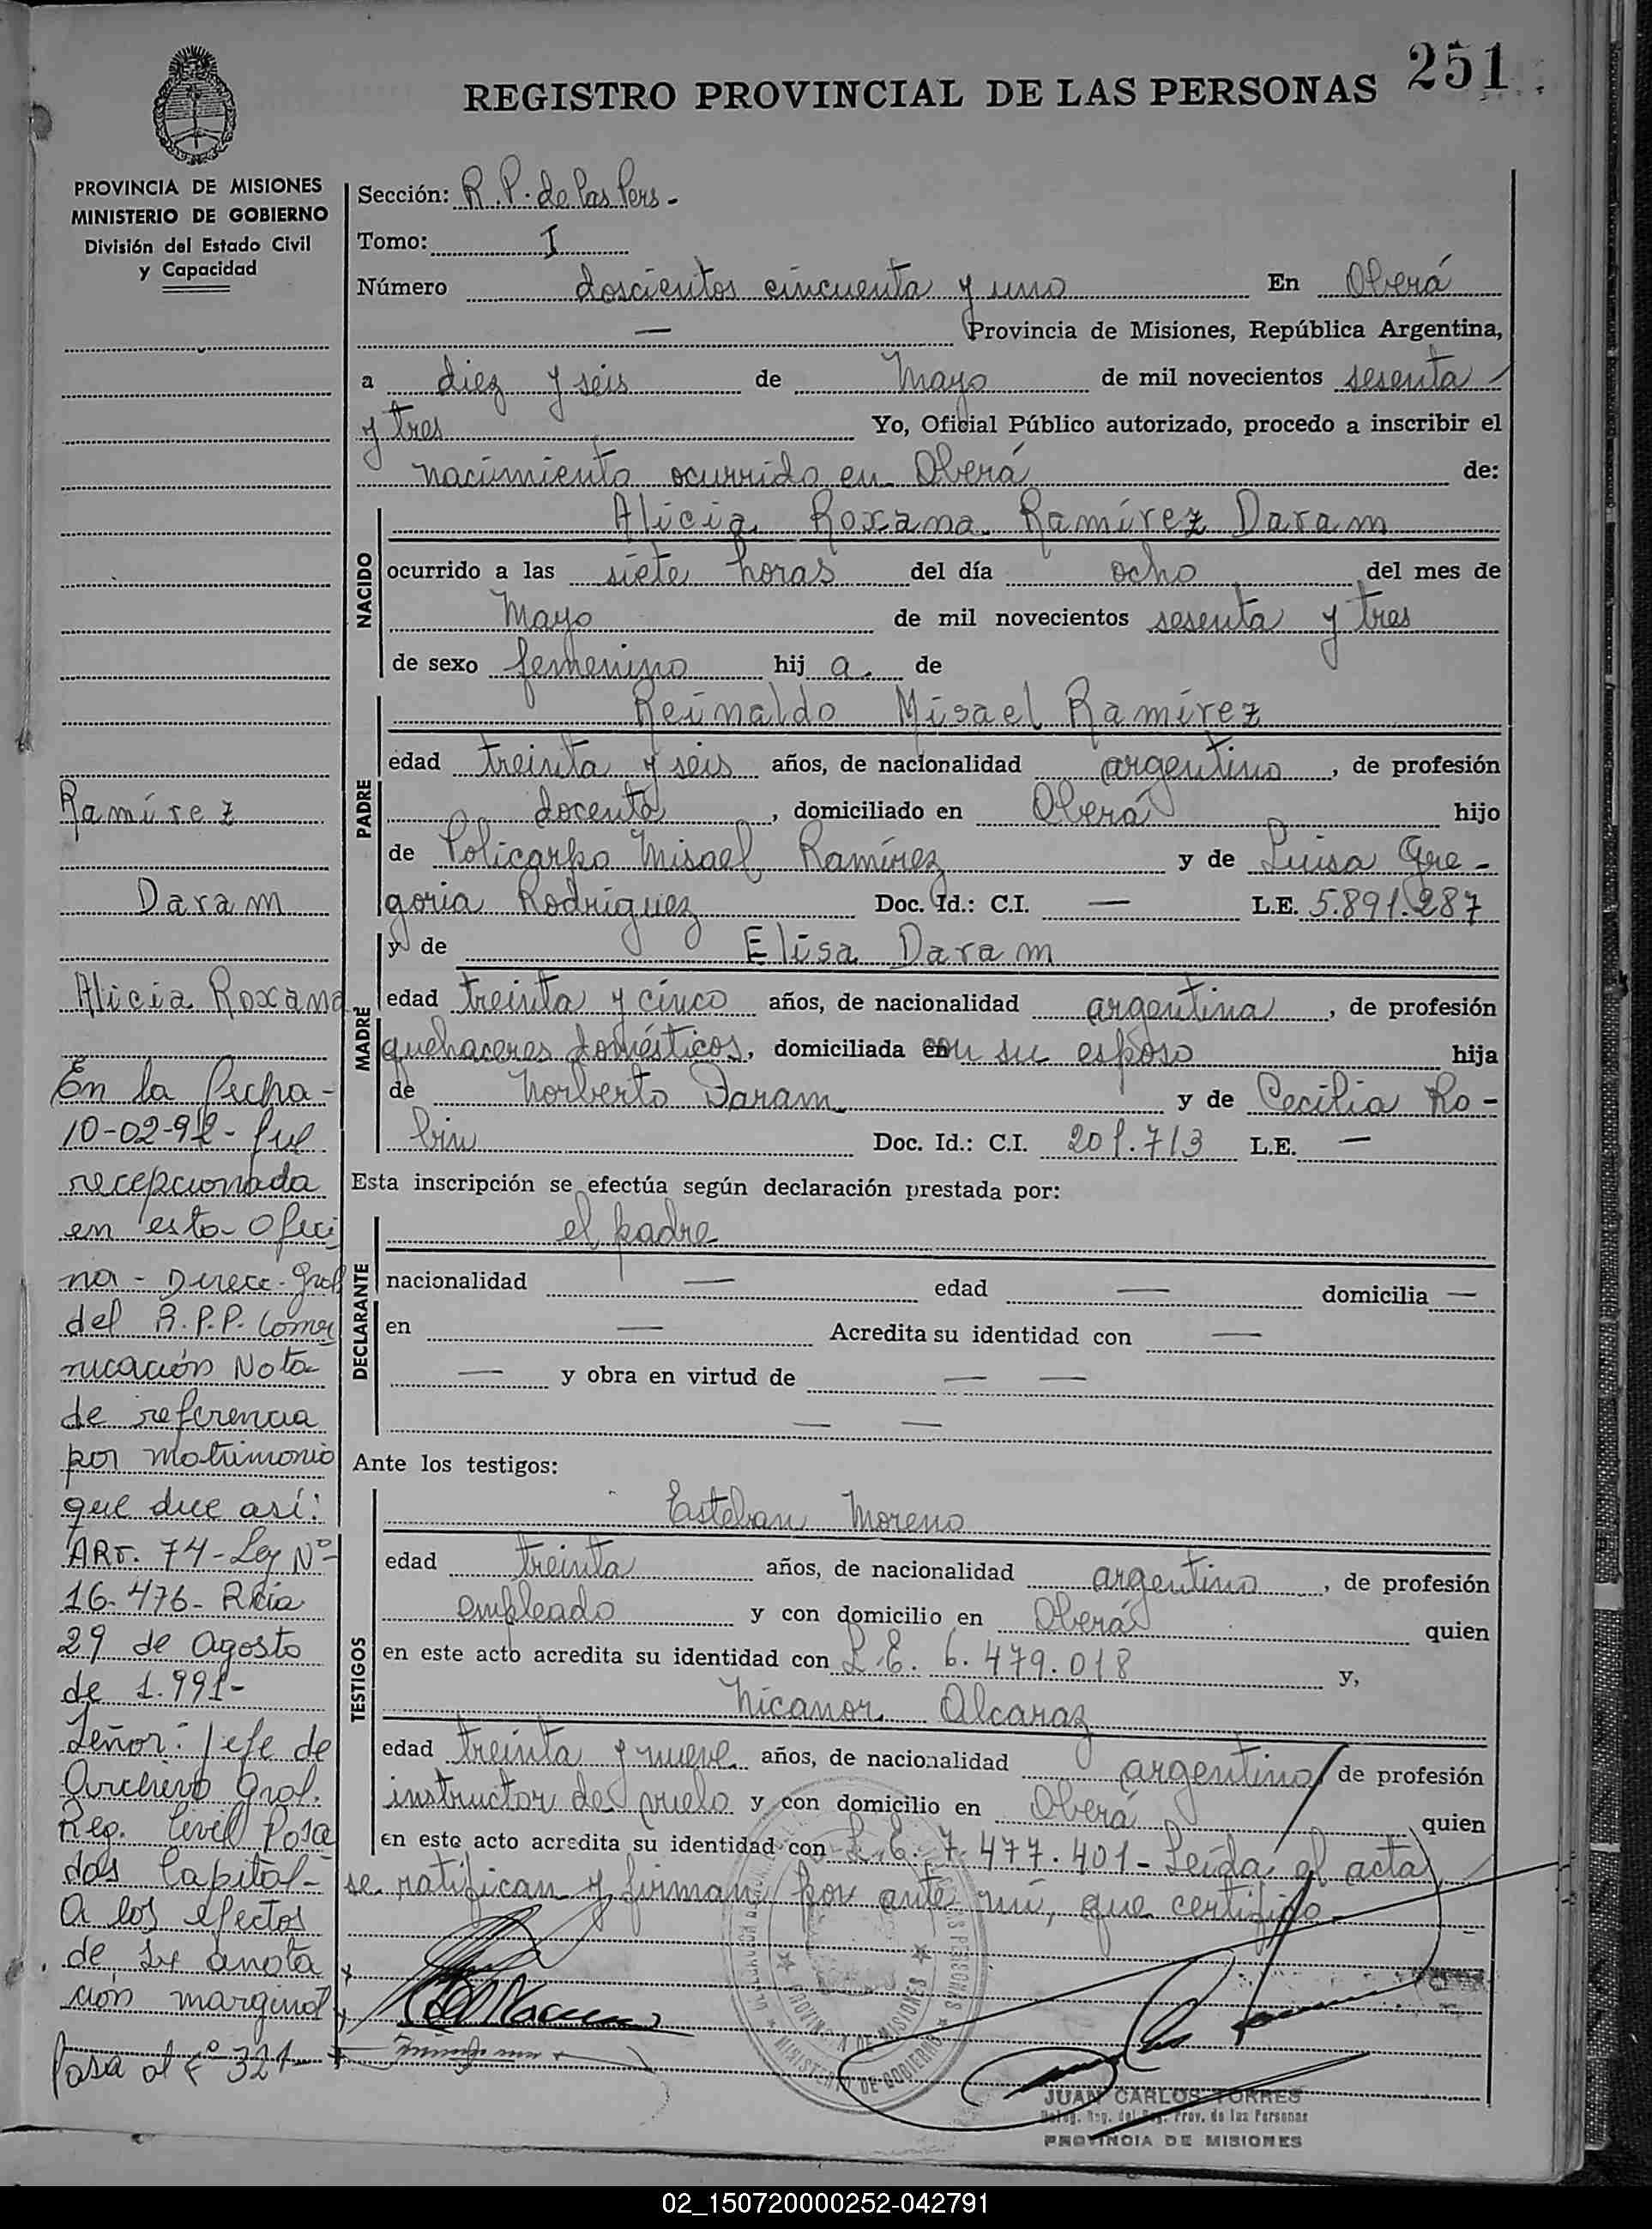 251
REGISTRO PROVINCIAL DE LAS PERSONAS
PROVINCIA DE MISIONES
MINISTERIO DE GOBIERNO
División del Estado Civil
y Capacidad
Ramírez
Daram
Alicia Roxana
En la fecha-
10-02-92- fue
recepcionada
en esta Ofici
na - Direcc. Gral
del R.P.P. Comu
nicación Nota
de referencia
por matrimonio
que dice así:
ART. 74 - Ley Nº-
16.476- Rcia
29 de Agosto
de 1.991-
Señor: Jefe de
Archivo Gral.
Reg. Civil Posa
das Capital-
A los efectos
de su anota
ción marginal
Pasa al Fº 321
Sección: R. P. de las Pers-
Tomo: I
Número doscientos cincuenta y uno En Oberá
— Provincia de Misiones, República Argentina,
a diez y seis de Mayo de mil novecientos sesenta
y tres Yo, Oficial Público autorizado, procedo a inscribir el
nacimiento ocurrido en Oberá de:
NACIDO
Alicia Roxana Ramírez Daram
ocurrido a las siete horas del día ocho del mes de
Mayo de mil novecientos sesenta y tres
de sexo femenino hij a de
PADRE
Reinaldo Misael Ramírez
edad treinta y seis años, de nacionalidad argentino, de profesión
docente, domiciliado en Oberá hijo
de Policarpo Misael Ramírez y de Luisa Gre-
goria Rodríguez Doc. Id.: C.I. — L.E. 5.891.287
MADRE
y de Elisa Daram
edad treinta y cinco años, de nacionalidad argentina, de profesión
quehaceres domésticos, domiciliada con su esposo hija
de Norberto Daram y de Cecilia Ro-
lin Doc. Id.: C.I. 201.713 L.E. —
Esta inscripción se efectúa según declaración prestada por:
DECLARANTE
el padre
nacionalidad — edad — domicilia —
en — Acredita su identidad con —
— y obra en virtud de — —
— —
Ante los testigos:
TESTIGOS
Esteban Moreno
edad treinta años, de nacionalidad argentino, de profesión
empleado y con domicilio en Oberá quien
en este acto acredita su identidad con L.E. 6.479.018 y,
Nicanor Alcaraz
edad treinta y nueve años, de nacionalidad argentino, de profesión
instructor de vuelo y con domicilio en Oberá quien
en este acto acredita su identidad con L.E. 7.477.401- Leída el acta
se ratifican y firman por ante mí, que certifico-
PROVINCIA DE MISIONES
MINISTERIO DE GOBIERNO
JUAN CARLOS TORRES
Prov. de las Personas
PROVINCIA DE MISIONES
02_150720000252-042791